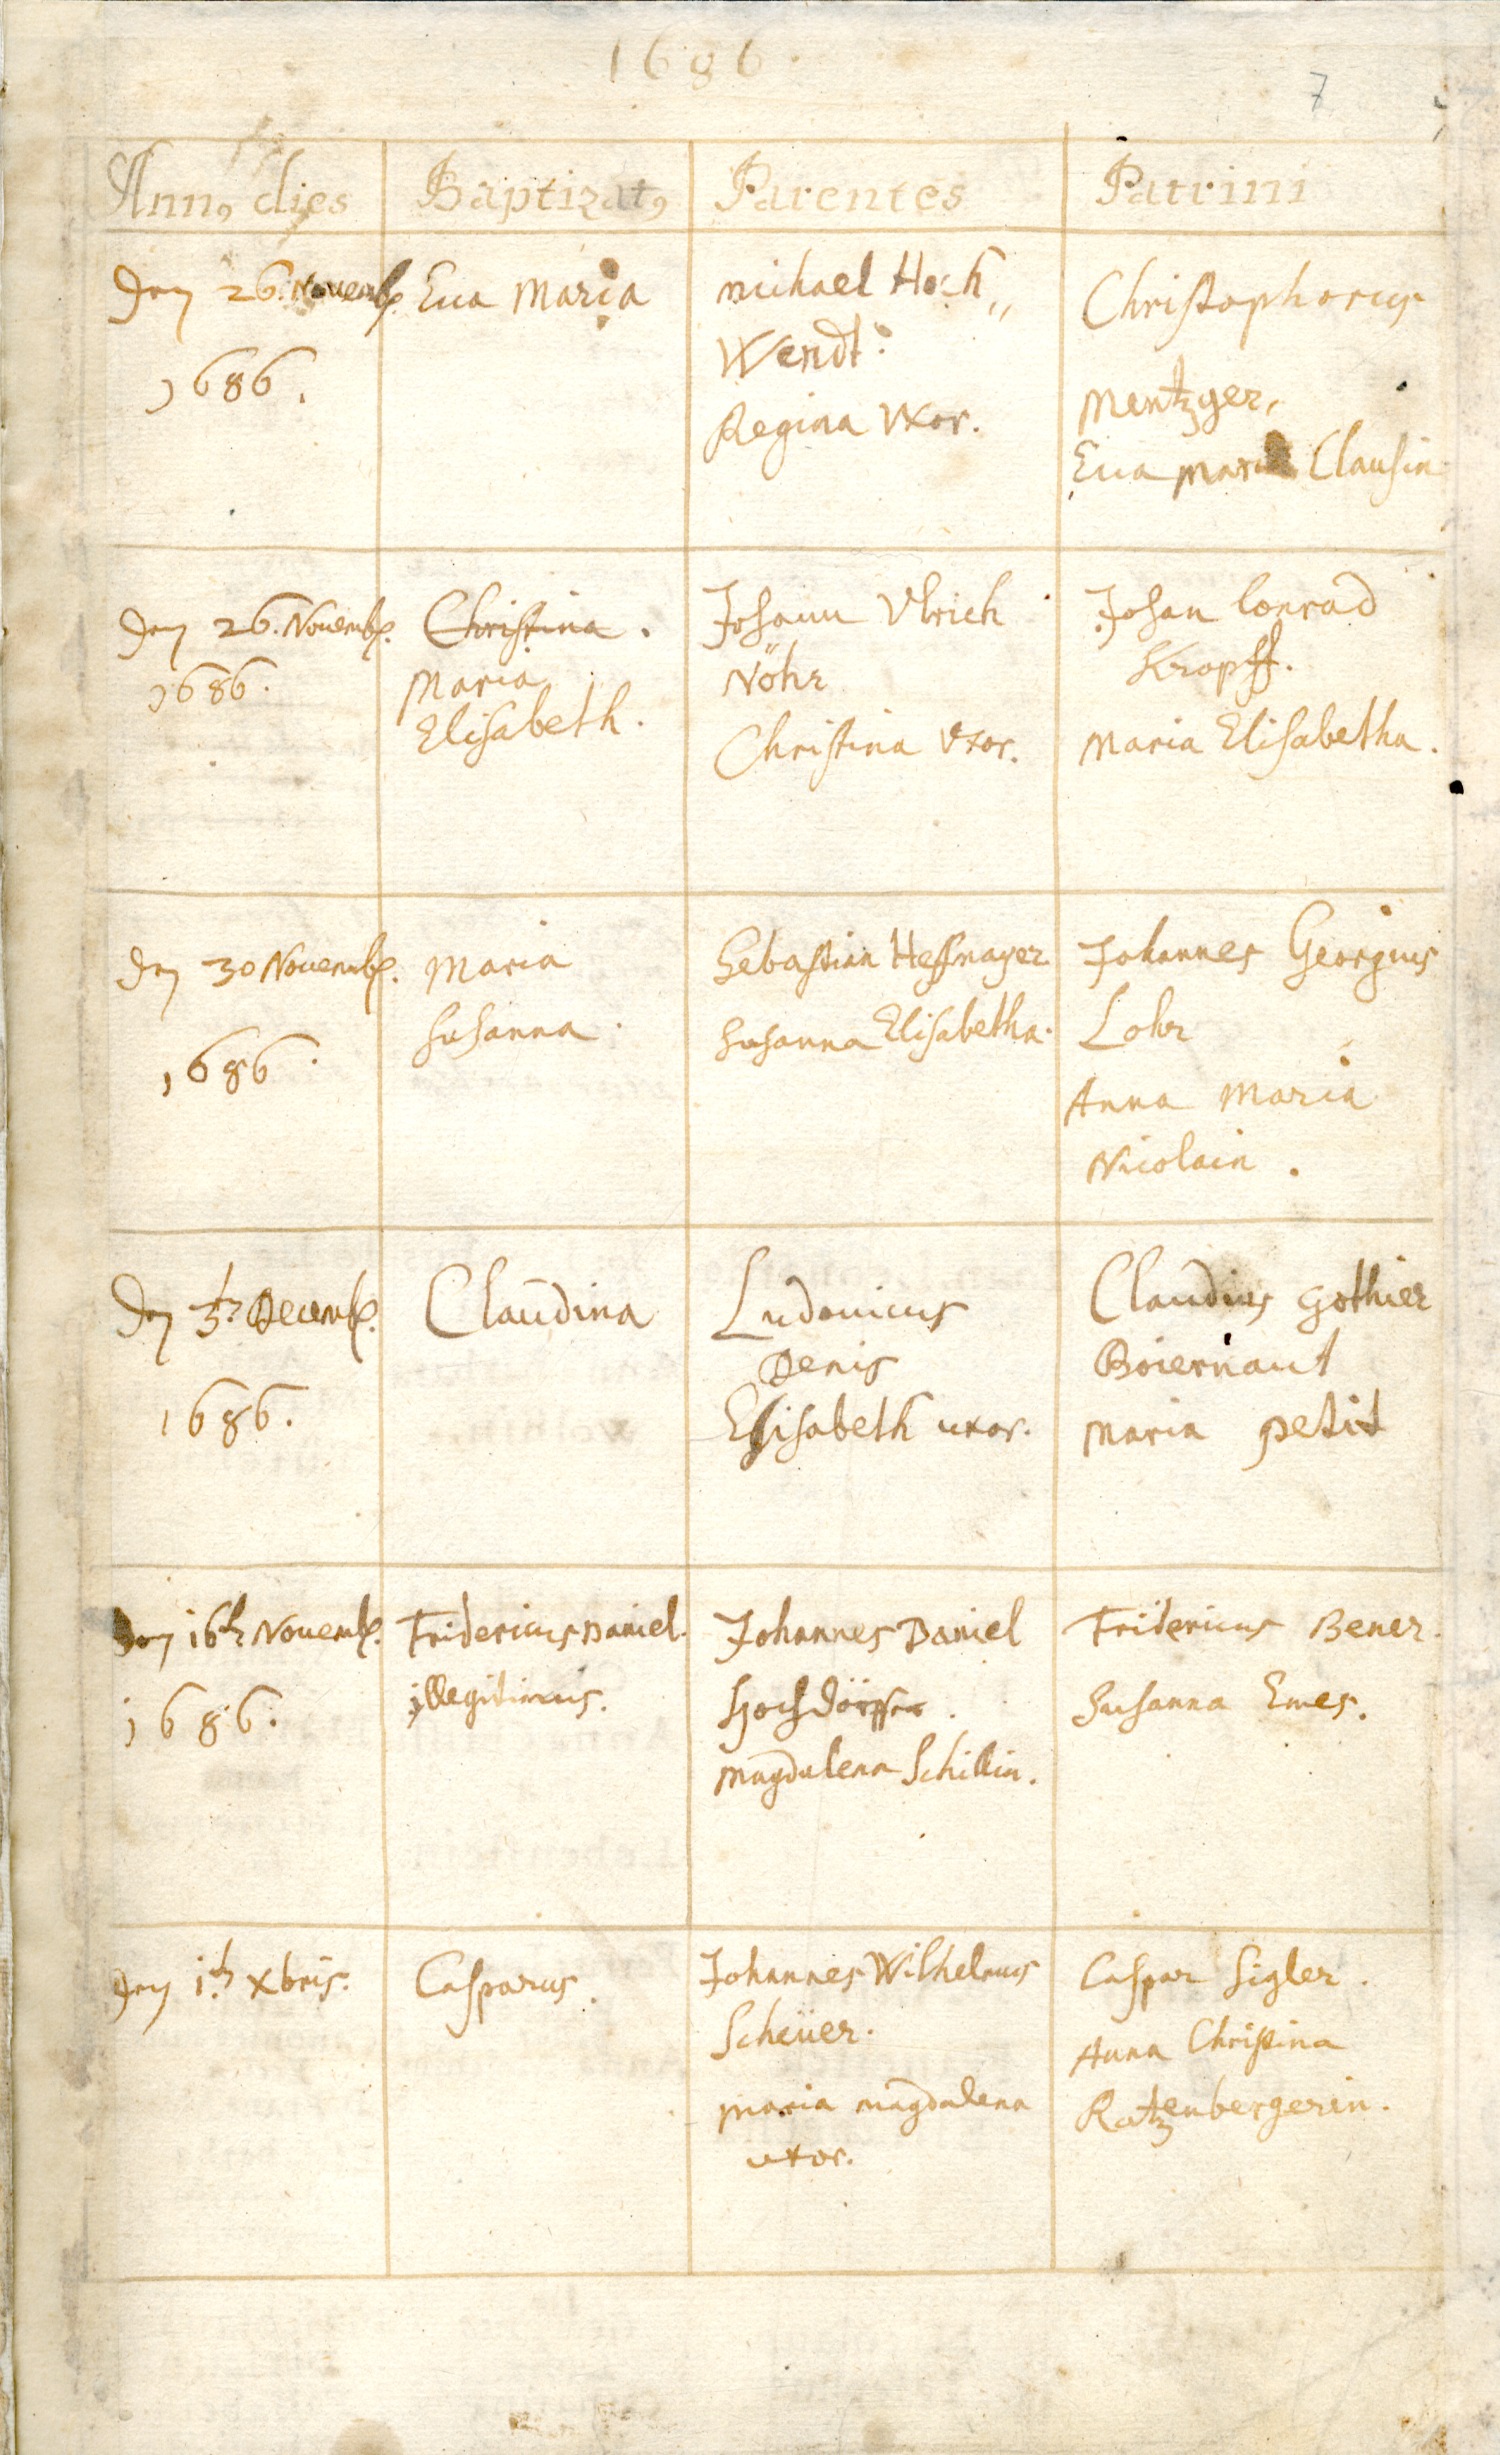 1686.
7
Ann9 dies Baptizat9 Parentes Patrini
den 26. Novemb. Eua Maria michael Hoch,, Christophorus
1686. Wendt. Mentzger,
Regina Vxor. Eua Maria Clausin
den 26. Novemb. Christina. Johann Vlrich Johan Conrad
1686. Maria Nöhr Kropff.
Elisabeth. Christina Vxor. Maria Elisabetha.
den 30 Novemb. Maria Sebastian Heffnayer Johannes Georgius
1686. Susanna. Susanna Elisabetha. Lohr
Anna Maria
Nicolain.
den Decemb. Claudina Ludovicus Claudius Gothier
1686. Denis Boiernaut
Elisabeth uxor. Maria petit
den 16t Novemb. Fridericus Daniel. Johannes Daniel Fridericus Bener.
1686. illegitimus. Hochdörffer. Susanna Emes.
Magdalena Schillin.
den 1. Xbris. Casparus. Johannes Wilhelmus Caspar Sigler.
Scheüer. Anna Christina
Maria magdalena Ratzenbergerin.
uxor.